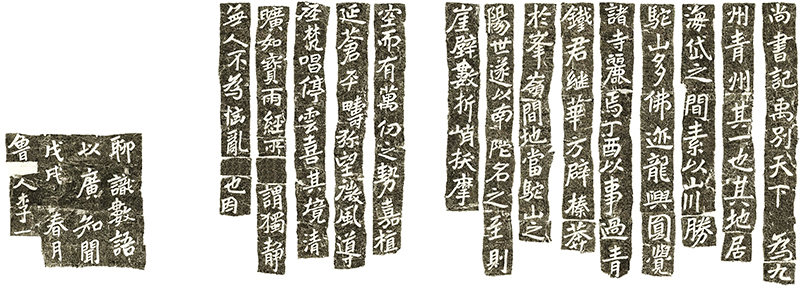 尚書記禹別天下為九
州青州其一也其地居
海岱之間素以山川勝
駝山多佛迹龍興圓覺
諸寺麗焉丁酉以事過青
鐵君继華方辟榛莽
於峯嶺間地當駝山之
陽世遂以南陀名之至則
崖壁數折峭拔摩
空而有萬仞之勢嘉植
延蒼平疇弥望凌風導
梵唱停雲喜其境清
曠如寶雨經所謂獨静
無人不為惱亂也因
聊識數語
以廣知聞
戊戌春月
會人李一